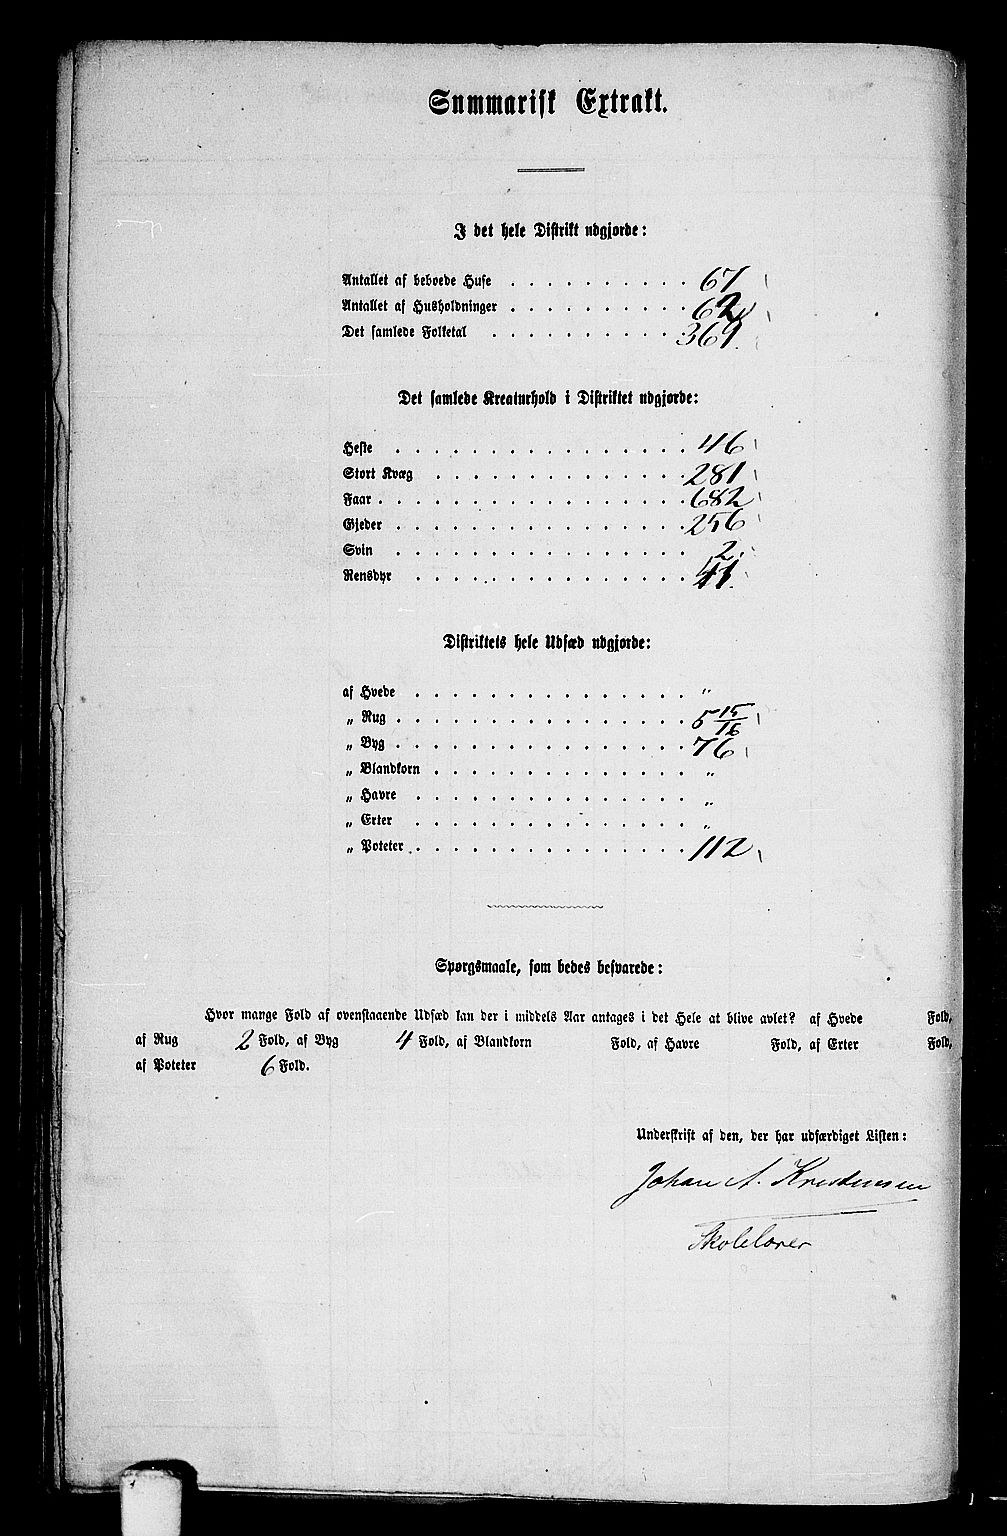 Summarisk Extrakt.
I det hele Distrikt udgjorde:
Antallet af beboede Huse . . . . . . . . . . 67
Antallet af Husholdninger . . . . . . . . . . 62
Det samlede Folketal . . . . . . . . . . 369.
Det samlede Kreaturhold i Distriktet udgjorde:
Heste . . . . . . . . . . . . . . . . 46
Stort Kvæg . . . . . . . . . . . . . . 281
Faar . . . . . . . . . . . . . . . . . 682
Gjeder . . . . . . . . . . . . . . . . 256
Svin . . . . . . . . . . . . . . . . 2.
Rensdyr . . . . . . . . . . . . . . .
Distriktets hele Udsæd udgjorde:
af Hvede . . . . . . . . . . . . . . . "
„ Rug . . . . . . . . . . . . . . . . 5 15/16
„ Byg . . . . . . . . . . . . . . . . 76
„ Blandkorn . . . . . . . . . . . . . . "
„ Havre . . . . . . . . . . . . . . . "
„ Erter . . . . . . . . . . . . . . . "
„ Poteter . . . . . . . . . . . . . . . 112
Spørgsmaale, som bedes besvarede:
Hvor mange Fold af ovenstaaende Udsæd kan der i middels Aar antages i det Hele at blive avlet? af Hvede Fold,
af Rug 2 Fold, af Byg 4 Fold, af Blandkorn Fold, af Havre Fold, af Erter Fold,
af Poteter 6 Fold.
Underskrift af den, der har udfærdiget Listen:
Johan A. Kristensen
Skolelærer